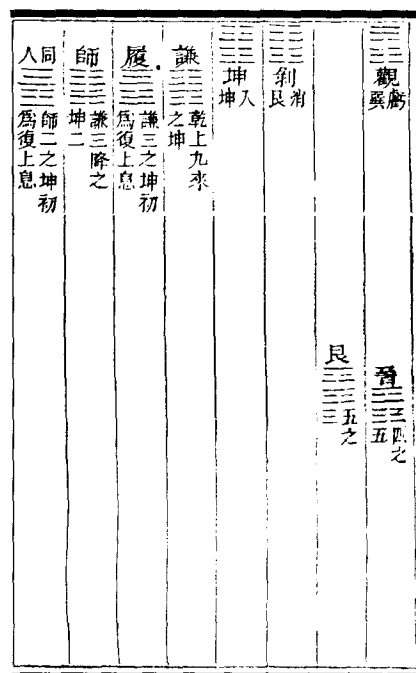 觀 虧巽 晉 四之五
艮 五之三
剝 消艮
坤 入坤
謙 乾上九來之坤
履 謙三之坤初為復上息
師 謙三降之坤二
同人 師二之坤初為復上息